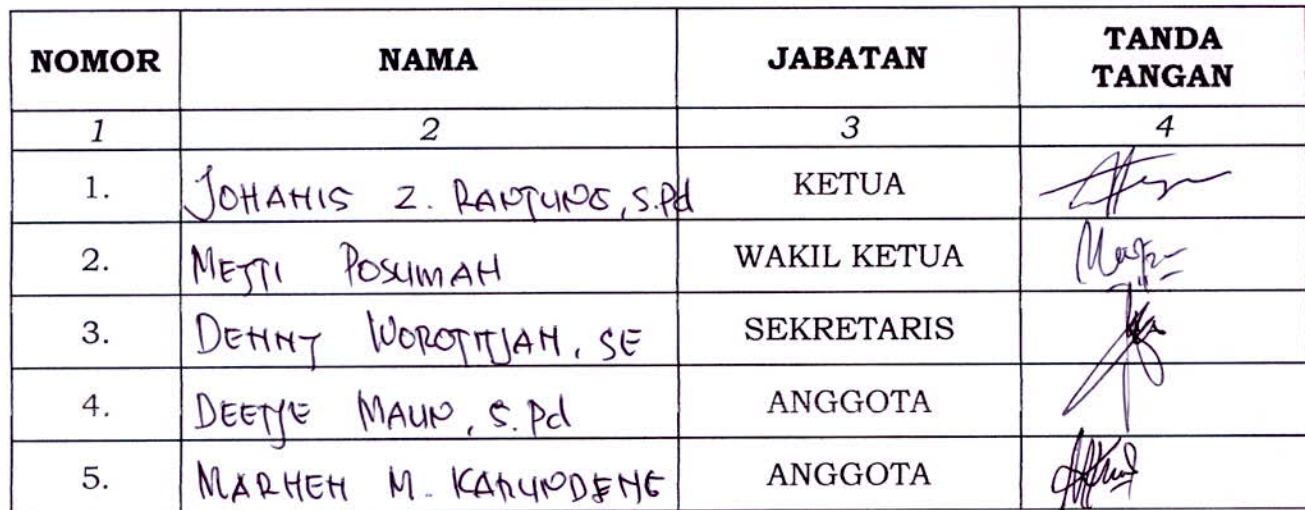 NOMOR NAMA JABATAN TANDA
TANGAN
1 2 3 4
1. JOHANIS Z. RANTUNG, S.Pd KETUA
2. METTI POSUMAH WAKIL KETUA
3. DENNY WOROTITJAN, SE SEKRETARIS
4. DEETJE MAUN, S.Pd ANGGOTA
5. MARHEN M. KARUNDENG ANGGOTA